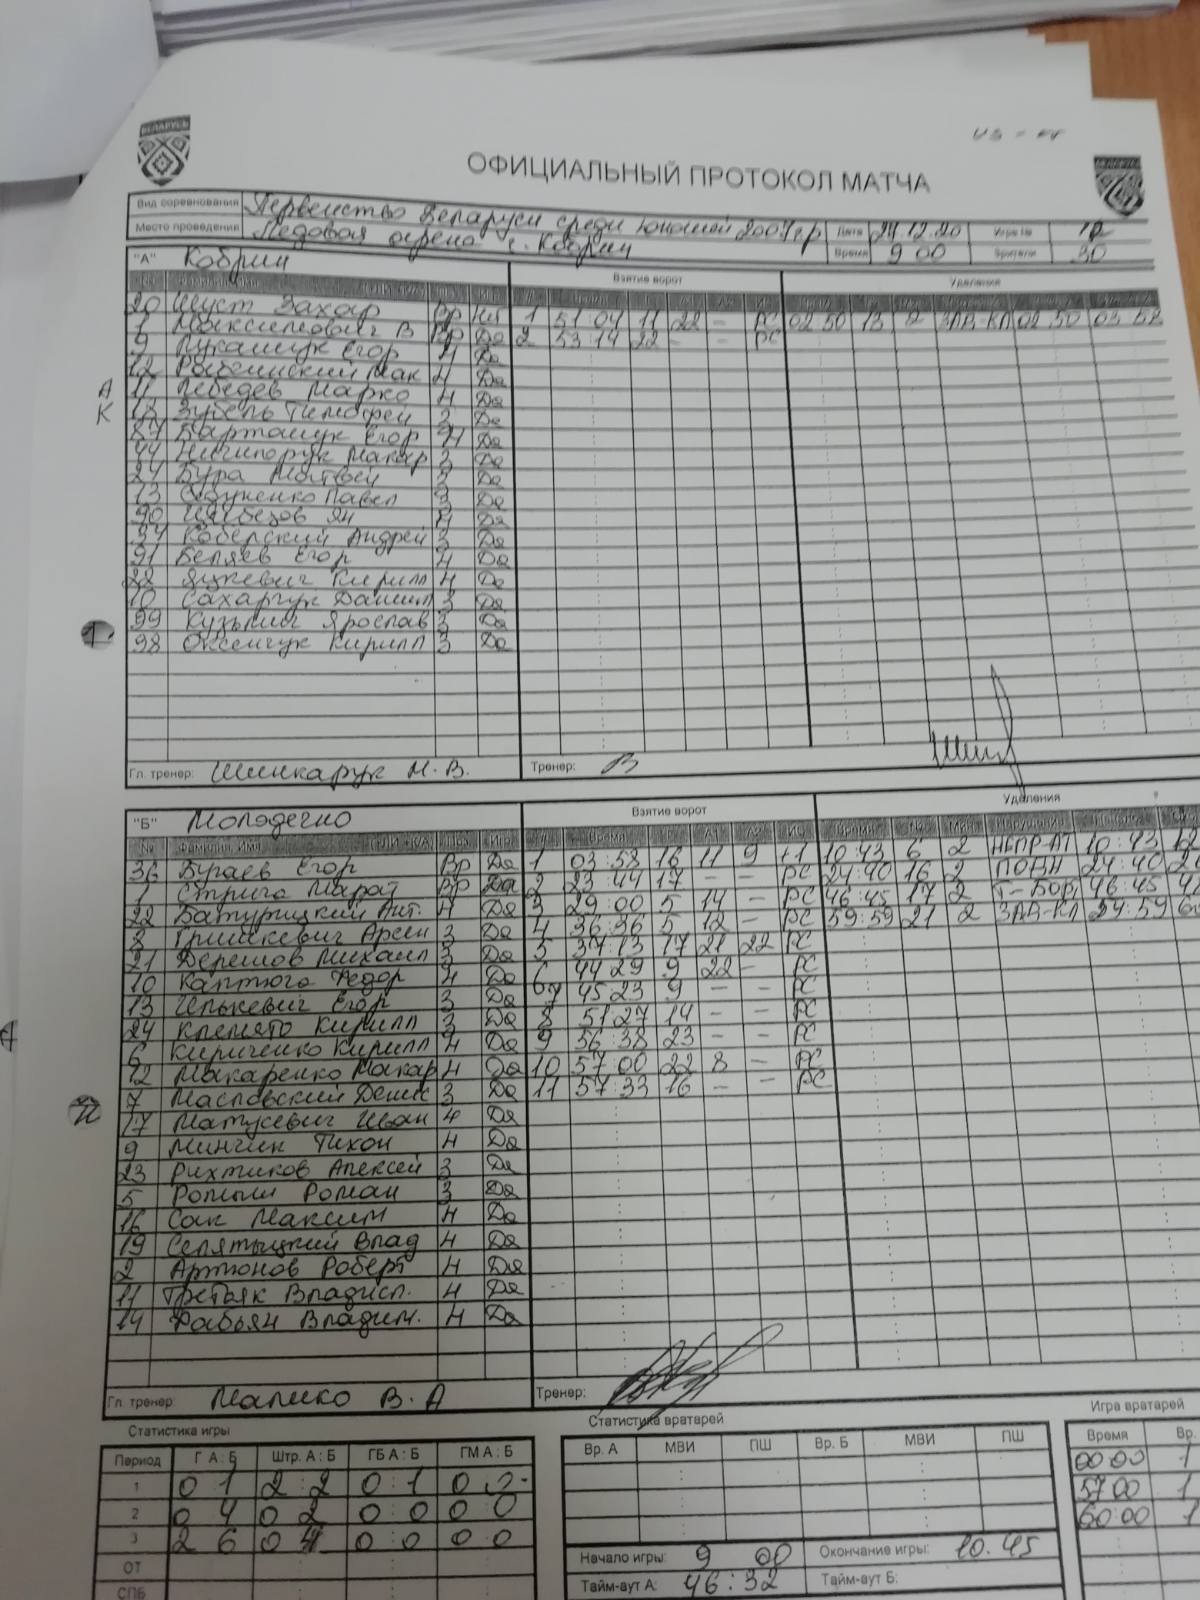 БЕЛАРУСЬ
ОФИЦИАЛЬНЫЙ ПРОТОКОЛ МАТЧА
Вид соревнования Первенство Беларуси среди юношей 2007 г.р Дата 24.12.20 Игра № 12
Место проведения Ледовая арена г. Кобрин Время 9 00 Зрители 30
"А" Кобрин Взятие ворот Удаления
20 Шуст Захар Вр Нет 1 51 04 11 22 – РС 02 50 13 2 ЗАД-КЛ 02 50 03 52
1 Максимович В Вр Да 2 53 14 22 – – РС
9 Лукашук Егор Н Да
12 Мак Н Да
А 11 Лебедев Марко Н Да
К 18 Зубель Тимофей З Да
87 Барташук Егор Н Да
44 Ничипорук Макар З Да
24 Бура Матвей З Да
13 Павел З Да
90 Ян Н Да
Андрей З Да
91 Беляев Егор Н Да
22 Яцкевич Кирилл Н Да
10 Сахарчук Даниил З Да
99 Кузьмич Ярослав З Да
98 Оксенчук Кирилл З Да
Гл. тренер: Шинкарук Н. В. Тренер:
"Б" Молодечно Взятие ворот Удаления
№ Фамилия, Имя Поз Игр Время Время
36 Бураев Егор Вр Да 1 03:58 16 11 9 +1 10:43 6 2 НЕПР-АТ 10:43 12
1 Стрига Марат Вр Да 2 23:44 17 – – РС 24:40 16 2 24:40
22 Батурицкий Ант. Н Да 3 29:00 5 14 – РС 46:45 17 2 46:45
8 Гришкевич Арсен З Да 4 36:36 5 12 – РС 59:59 21 2 ЗАД-КЛ 59:59
21 Дерешов Михаил З Да 5 37:13 17 21 22 РС
10 Каптюга Федор Н Да 6 44 29 9 22 – РС
13 Илькевич Егор З Да 7 45 23 9 – – РС
24 Клемято Кирилл З Да 8 51:27 14 – – РС
6 Кириченко Кирилл Н Да 9 56:38 23 – – РС
12 Макаренко Макар Н Да 10 57 00 22 8 – РС
7 Масловский Денис З Да 11 57:33 16 – – РС
17 Матусевич Иван Н Да
9 Минчик Тихон Н Да
23 Рихтиков Алексей З Да
5 Ромыш Роман З Да
16 Сак Максим Н Да
19 Селятыцкий Влад Н Да
2 Артюнов Роберт Н Да
11 Третьяк Владисл. Н Да
14 Фабьян Владим. Н Да
Гл. тренер: Малико В. А Тренер:
Статистика игры Статистика вратарей Игра вратарей
Период Г А : Б Штр. А : Б ГБ А : Б ГМ А : Б Вр. А МВИ ПШ Вр. Б МВИ ПШ Время Вр.
1 0 1 2 : 2 0 : 1 0 00:00 1
2 0 4 0 2 0 : 0 0 0 57 00 1
3 2 6 0 4 0 : 0 0 0 60:00 1
ОТ Начало игры: 9 00 Окончание игры: 10.45
СПБ Тайм-аут А: 46:32 Тайм-аут Б: